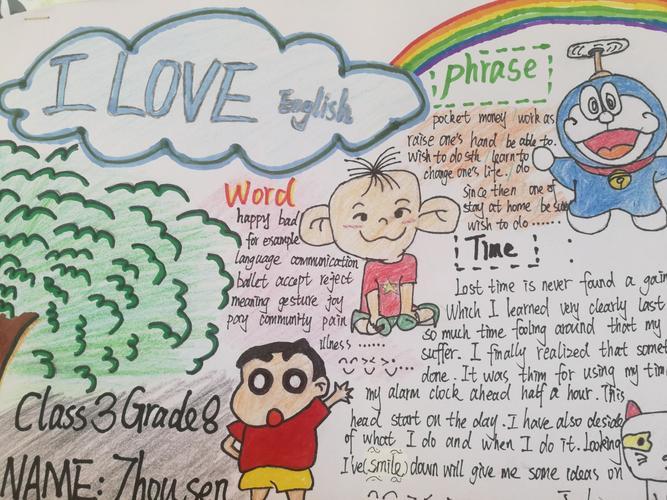 I LOVE English
phrase
pocket money work as
raise one's hand be able to.
wish to do sth learn to
change one's life. do
Since then one of
stay at home be sure
wish to do ......
Word
happy bad
for example
language communication
ballet accept reject
meaning gesture joy
pay community pain
illness ......
Time
Lost time is never found a gain
Which I learned very clearly last
so much time fooing around that my
suffer. I finally realized that somet
done. It was them for using my tim
my alarm clock ahead half a hour. This
head start on the day. I have also deside
of what I do and when I do it. Looking
I've (smile) down will give me some ideas on
Class 3 Grade 8
NAME: Zhou sen